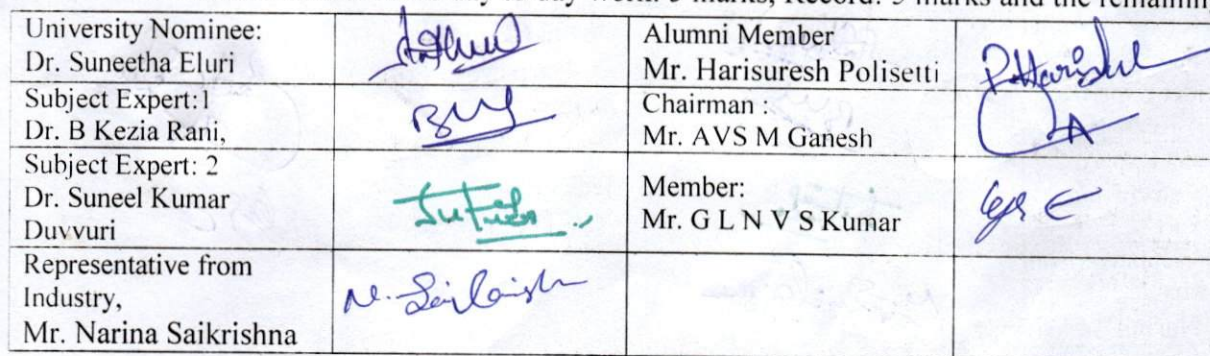 day work: 5 marks, Record: 5 marks and the remaining
University Nominee:
Dr. Suneetha Eluri
Alumni Member
Mr. Harisuresh Polisetti
P.Harish
Subject Expert:1
Dr. B Kezia Rani,
Chairman :
Mr. AVS M Ganesh
Subject Expert: 2
Dr. Suneel Kumar
Duvvuri
Member:
Mr. G L N V S Kumar
Representative from
Industry,
Mr. Narina Saikrishna